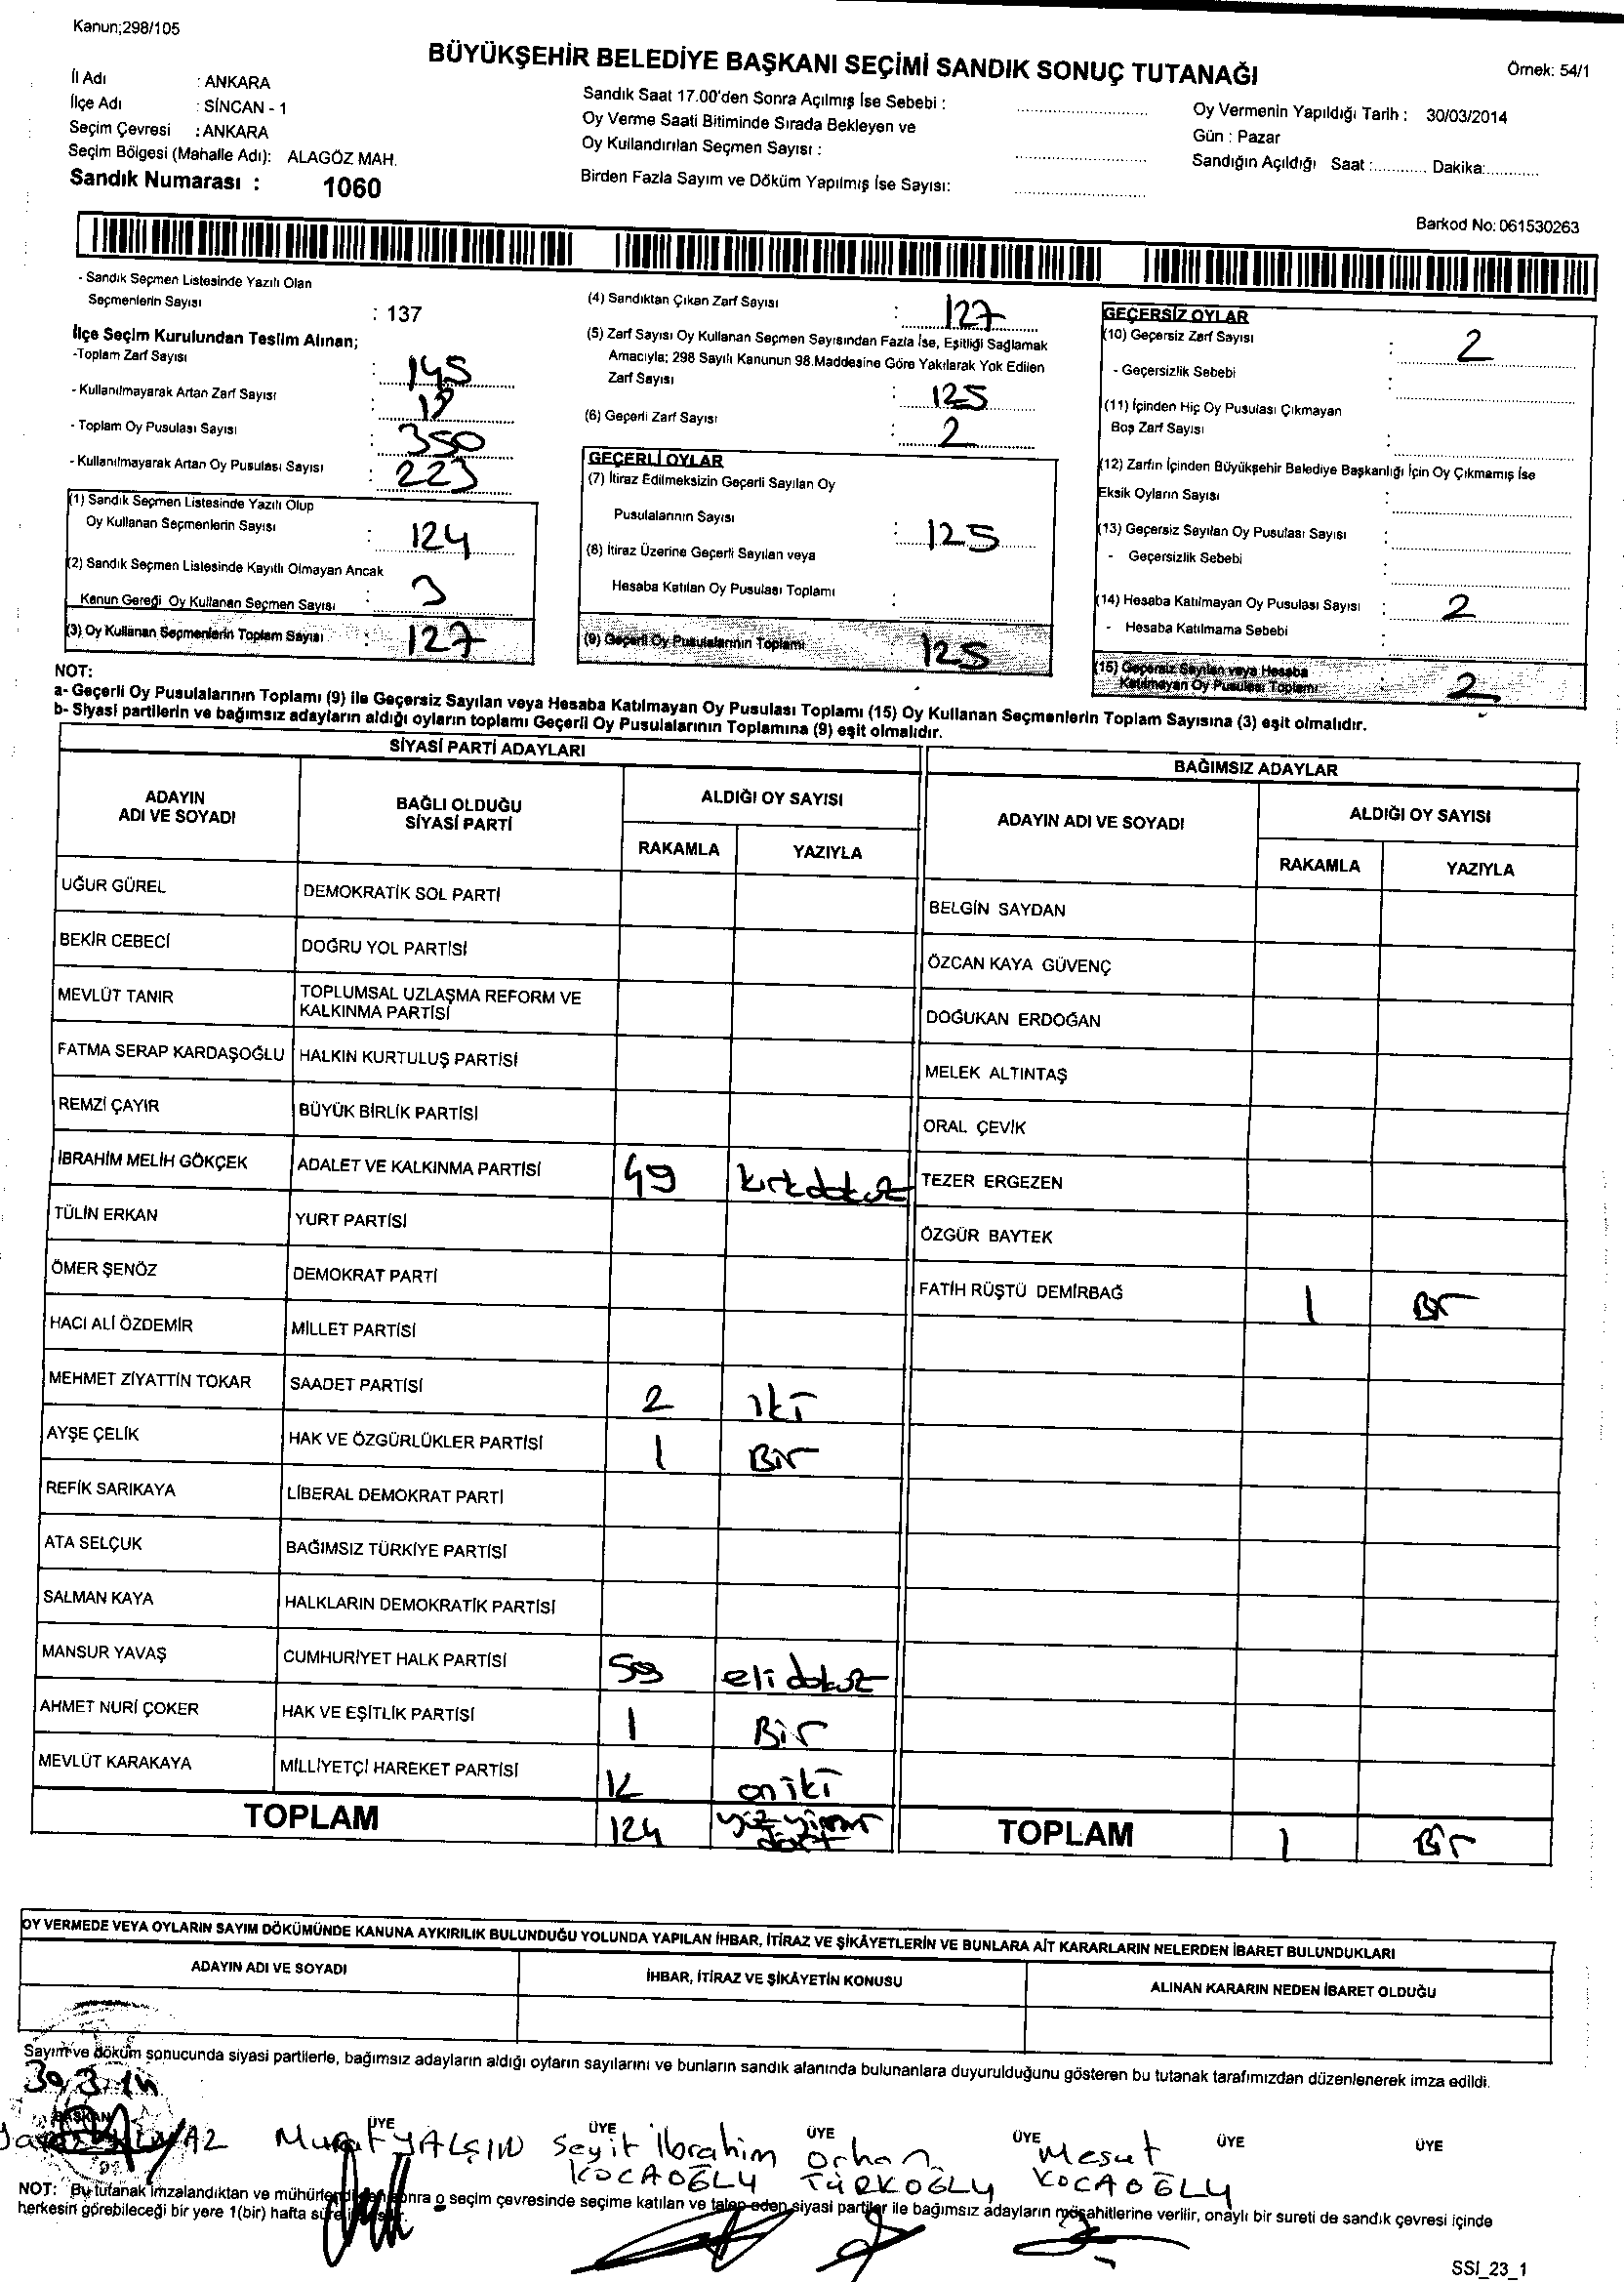 Kanun;298/105
BÜYÜKŞEHİR BELEDİYE BAŞKANI SEÇİMİ SANDIK SONUÇ TUTANAĞI
Örnek: 54/1
İl Adı : ANKARA
İlçe Adı : SİNCAN - 1
Seçim Çevresi : ANKARA
Seçim Bölgesi (Mahalle Adı): ALAGÖZ MAH.
Sandık Numarası : 1060
Sandık Saat 17.00'den Sonra Açılmış İse Sebebi :
Oy Verme Saati Bitiminde Sırada Bekleyen ve
Oy Kullandırılan Seçmen Sayısı :
Birden Fazla Sayım ve Döküm Yapılmış İse Sayısı:
Oy Vermenin Yapıldığı Tarih : 30/03/2014
Gün : Pazar
Sandığın Açıldığı Saat :............ Dakika:............
Barkod No: 061530263
- Sandık Seçmen Listesinde Yazılı Olan
Seçmenlerin Sayısı : 137
İlçe Seçim Kurulundan Teslim Alınan;
-Toplam Zarf Sayısı : 145
- Kullanılmayarak Artan Zarf Sayısı :
- Toplam Oy Pusulası Sayısı : 350
- Kullanılmayarak Artan Oy Pusulası Sayısı : 223
(1) Sandık Seçmen Listesinde Yazılı Olup
Oy Kullanan Seçmenlerin Sayısı : 124
(2) Sandık Seçmen Listesinde Kayıtlı Olmayan Ancak
Kanun Gereği Oy Kullanan Seçmen Sayısı : 3
(3) Oy Kullanan Seçmenlerin Toplam Sayısı : 127
(4) Sandıktan Çıkan Zarf Sayısı : 127
(5) Zarf Sayısı Oy Kullanan Seçmen Sayısından Fazla İse, Eşitliği Sağlamak
Amacıyla; 298 Sayılı Kanunun 98.Maddesine Göre Yakılarak Yok Edilen
Zarf Sayısı : 125
(6) Geçerli Zarf Sayısı : 2
GEÇERLİ OYLAR
(7) İtiraz Edilmeksizin Geçerli Sayılan Oy
Pusulalarının Sayısı : 125
(8) İtiraz Üzerine Geçerli Sayılan veya
Hesaba Katılan Oy Pusulası Toplamı :
(9) Geçerli Oy Pusulalarının Toplamı 125
GEÇERSİZ OYLAR
(10) Geçersiz Zarf Sayısı : 2
- Geçersizlik Sebebi :
(11) İçinden Hiç Oy Pusulası Çıkmayan
Boş Zarf Sayısı :
(12) Zarfın İçinden Büyükşehir Belediye Başkanlığı İçin Oy Çıkmamış İse
Eksik Oyların Sayısı :
(13) Geçersiz Sayılan Oy Pusulası Sayısı :
- Geçersizlik Sebebi :
(14) Hesaba Katılmayan Oy Pusulası Sayısı : 2
- Hesaba Katılmama Sebebi :
(15) Geçersiz Sayılan veya Hesaba
Katılmayan Oy Pusulası Toplamı : 2
NOT:
a- Geçerli Oy Pusulalarının Toplamı (9) ile Geçersiz Sayılan veya Hesaba Katılmayan Oy Pusulası Toplamı (15) Oy Kullanan Seçmenlerin Toplam Sayısına (3) eşit olmalıdır.
b- Siyasi partilerin ve bağımsız adayların aldığı oyların toplamı Geçerli Oy Pusulalarının Toplamına (9) eşit olmalıdır.
SİYASİ PARTİ ADAYLARI
ADAYIN ADI VE SOYADI
BAĞLI OLDUĞU SİYASİ PARTİ
ALDIĞI OY SAYISI
RAKAMLA YAZIYLA
UĞUR GÜREL DEMOKRATİK SOL PARTİ
BEKİR CEBECİ DOĞRU YOL PARTİSİ
MEVLÜT TANIR TOPLUMSAL UZLAŞMA REFORM VE
KALKINMA PARTİSİ
FATMA SERAP KARDAŞOĞLU HALKIN KURTULUŞ PARTİSİ
REMZİ ÇAYIR BÜYÜK BİRLİK PARTİSİ
İBRAHİM MELİH GÖKÇEK ADALET VE KALKINMA PARTİSİ 49 kırkdokuz
TÜLİN ERKAN YURT PARTİSİ
ÖMER ŞENÖZ DEMOKRAT PARTİ
HACI ALİ ÖZDEMİR MİLLET PARTİSİ
MEHMET ZİYATTİN TOKAR SAADET PARTİSİ 2 iki
AYŞE ÇELİK HAK VE ÖZGÜRLÜKLER PARTİSİ 1 Bir
REFİK SARIKAYA LİBERAL DEMOKRAT PARTİ
ATA SELÇUK BAĞIMSIZ TÜRKİYE PARTİSİ
SALMAN KAYA HALKLARIN DEMOKRATİK PARTİSİ
MANSUR YAVAŞ CUMHURİYET HALK PARTİSİ 59 eli dokuz
AHMET NURİ ÇOKER HAK VE EŞİTLİK PARTİSİ 1 Bir
MEVLÜT KARAKAYA MİLLİYETÇİ HAREKET PARTİSİ 12 oniki
TOPLAM 124 yüz yirmi dört
BAĞIMSIZ ADAYLAR
ADAYIN ADI VE SOYADI
ALDIĞI OY SAYISI
RAKAMLA YAZIYLA
BELGİN SAYDAN
ÖZCAN KAYA GÜVENÇ
DOĞUKAN ERDOĞAN
MELEK ALTINTAŞ
ORAL ÇEVİK
TEZER ERGEZEN
ÖZGÜR BAYTEK
FATİH RÜŞTÜ DEMİRBAĞ 1 Bir
TOPLAM 1 Bir
OY VERMEDE VEYA OYLARIN SAYIM DÖKÜMÜNDE KANUNA AYKIRILIK BULUNDUĞU YOLUNDA YAPILAN İHBAR, İTİRAZ VE ŞİKÂYETLERİN VE BUNLARA AİT KARARLARIN NELERDEN İBARET BULUNDUKLARI
ADAYIN ADI VE SOYADI İHBAR, İTİRAZ VE ŞİKÂYETİN KONUSU ALINAN KARARIN NEDEN İBARET OLDUĞU
Sayım ve döküm sonucunda siyasi partilerle, bağımsız adayların aldığı oyların sayılarını ve bunların sandık alanında bulunanlara duyurulduğunu gösteren bu tutanak tarafımızdan düzenlenerek imza edildi.
30.3.14
BAŞKAN ÜYE ÜYE ÜYE ÜYE ÜYE ÜYE
Murat YALÇIN Seyit İbrahim Orhan Mesut
KOCAOĞLU TÜRKOĞLU KOCAOĞLU
NOT: Bu tutanak imzalandıktan ve mühürlendikten sonra o seçim çevresinde seçime katılan ve talep eden siyasi partiler ile bağımsız adayların müşahitlerine verilir, onaylı bir sureti de sandık çevresi içinde
herkesin görebileceği bir yere 1(bir) hafta süre
SSI_23_1